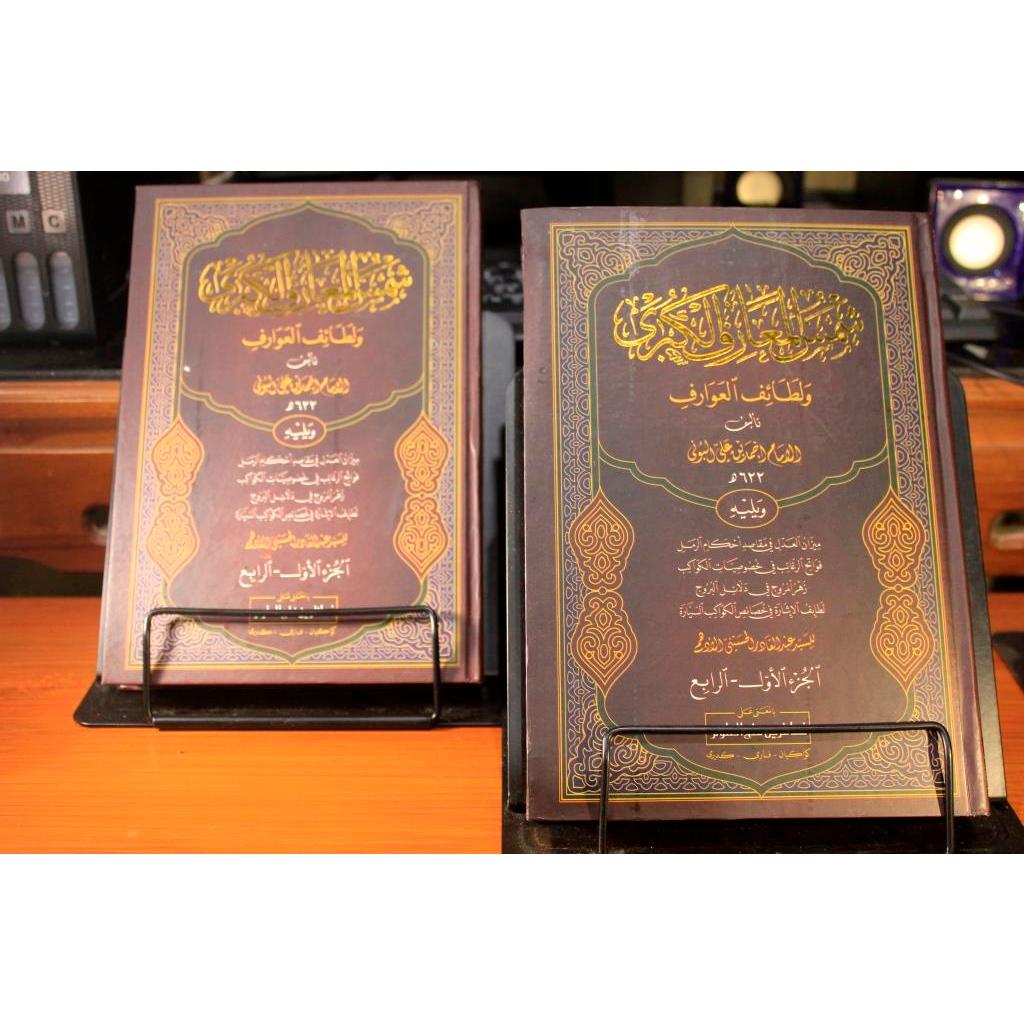 M C
شمس المعارف الكبرى
ولطائف العوارف
تأليف
الإمام احمد بن علي البوني
٦٢٢ھ
ويليه
ميزان العدل في مقاصد أحكام الرمل
فواتح الرغائب في خصوصيات الكواكب
زهر المروج في دلائل البروج
لطايف الإشارة في خصائص الكواكب السيارة
للسيد عبد القادر الحسيني الادهمي
الجزء الأول - الرابع
كراكيان - فاري - كديري
شمس المعارف الكبرى
ولطائف العوارف
تأليف
الإمام احمد بن علي البوني
٦٢٢ھ
ويليه
ميزان العدل في مقاصد أحكام الرمل
فواتح الرغائب في خصوصيات الكواكب
زهر المروج في دلائل البروج
لطايف الإشارة في خصائص الكواكب السيارة
للسيد عبد القادر الحسيني الادهمي
الجزء الأول - الرابع
كراكيان - فاري - كديري